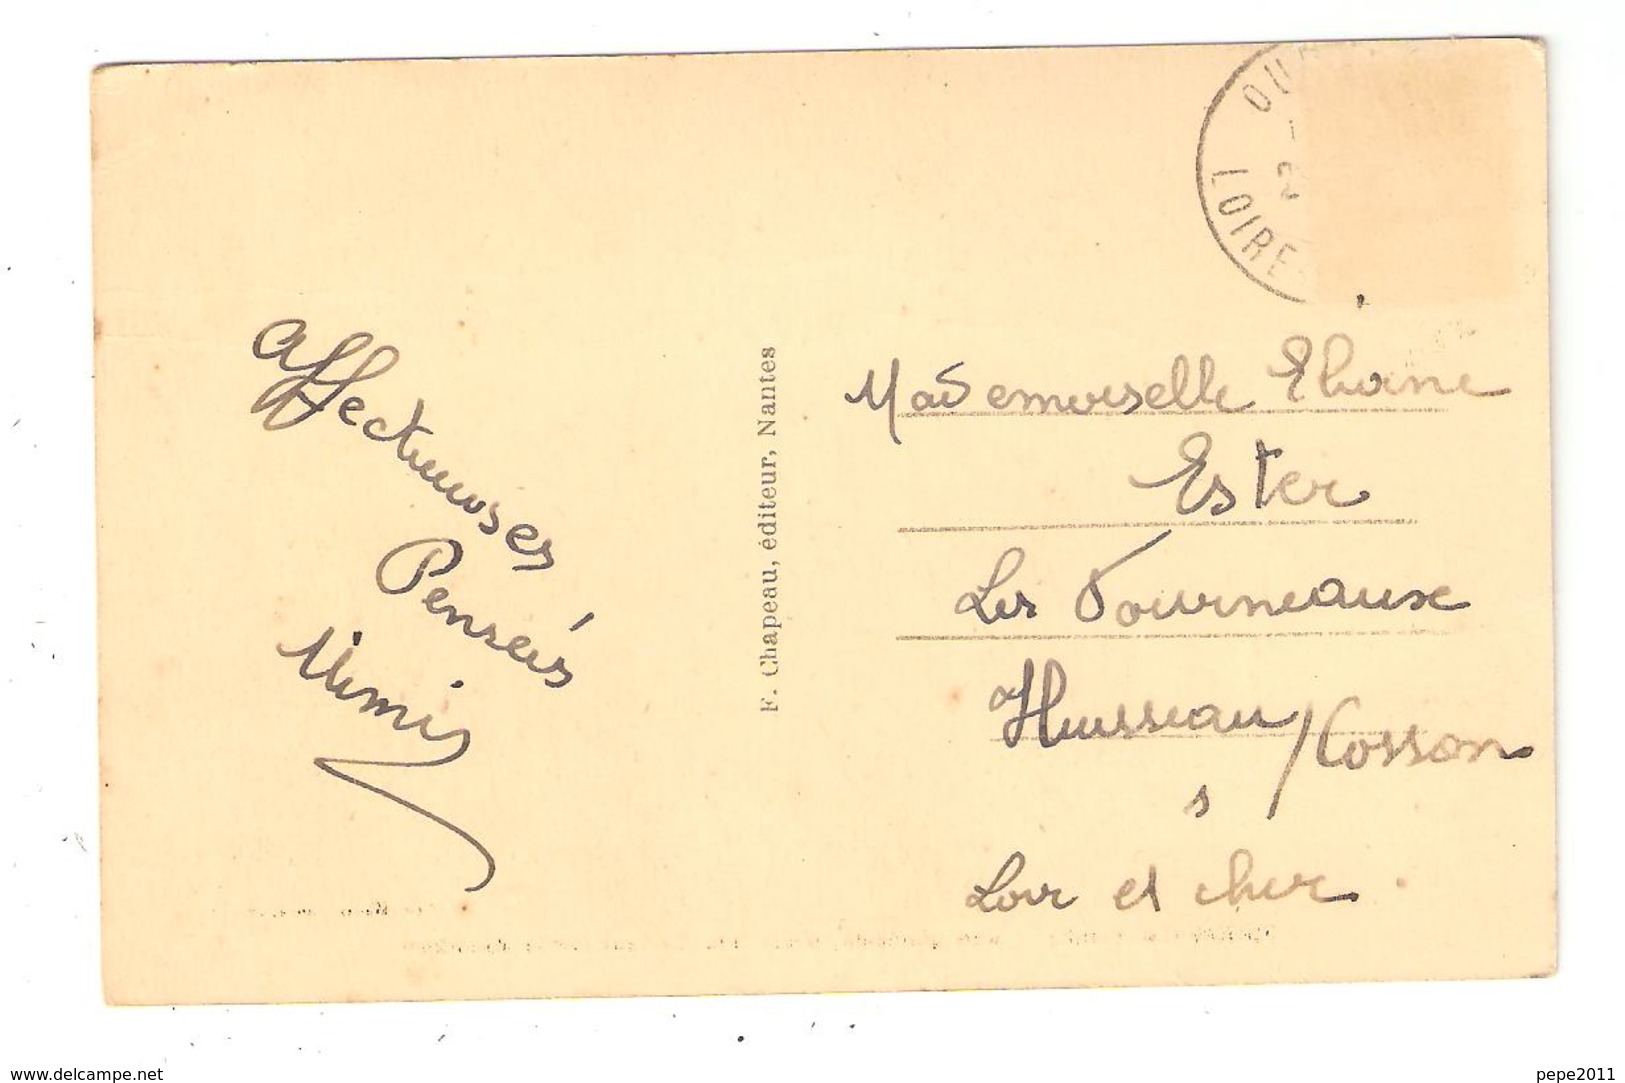 Affectueuses
Pensées
Mimi
F. Chapeau, éditeur, Nantes
LOIRE
Mademoiselle
Ester
Les Fourneaux
Huisseau / Cosson
s
Loir et cher
www.delcampe.net
pepe2011